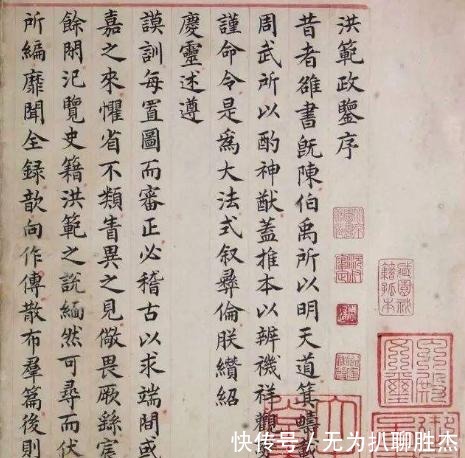 洪範政鑒序
昔者雒書既陳伯禹所以明天道箕疇
周武所以酌神猷蓋推本以辨禨祥觀
謹命令是爲大法式叙彝倫朕纘紹
慶靈述遵
謨訓每置圖而審正必稽古以求端間或
嘉之來懼省不類眚異之見儆畏厥繇
餘閑汜覽史籍洪範之說緬然可尋而伏
所編靡聞全録歆向作傳散布羣篇後則
快传号 / 无为扒聊胜杰